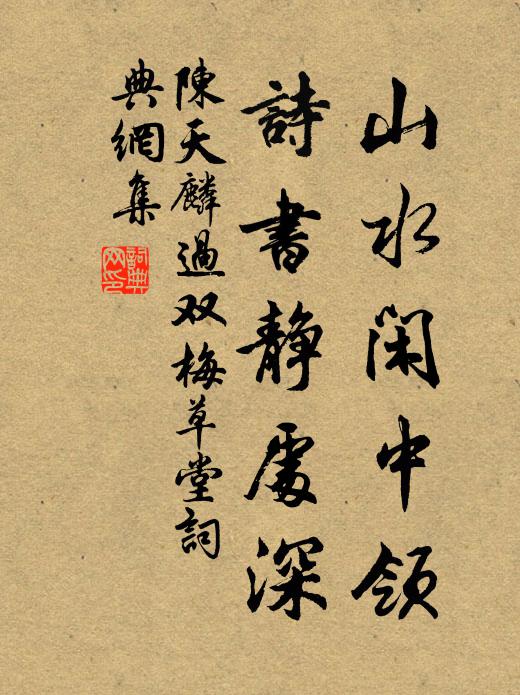 山水閑中領
詩書靜處深
陳天麟過双梅草堂詞
典網集
詞典
网印